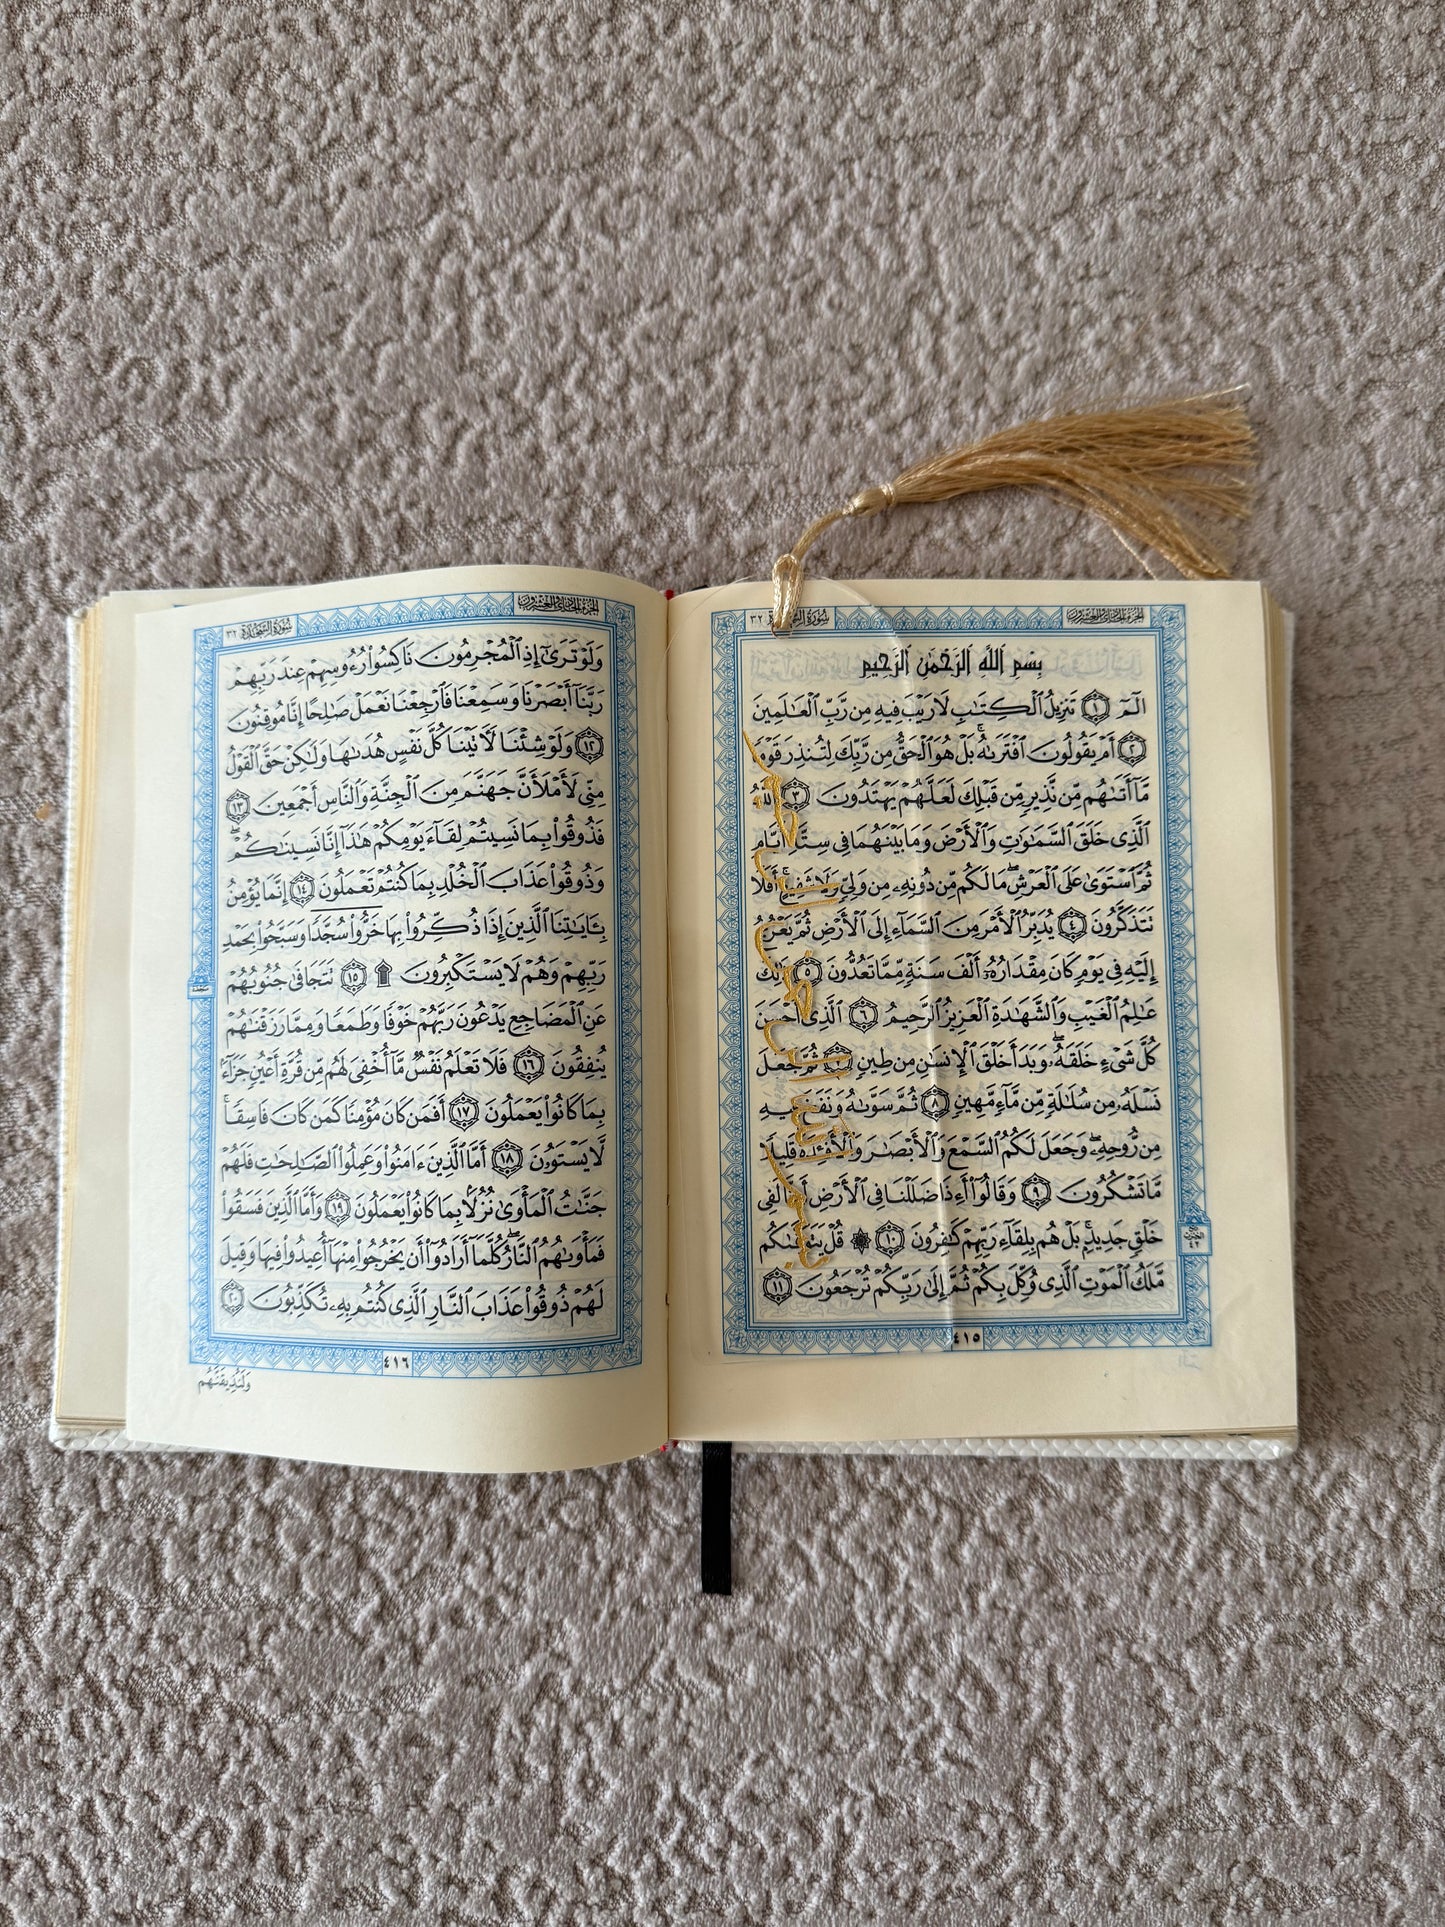 الجزء الحادي والعشرون
سورة السجدة ٣٢
بِسْمِ ٱللَّهِ ٱلرَّحْمَٰنِ ٱلرَّحِيمِ
الٓمٓ ١ تَنزِيلُ ٱلْكِتَٰبِ لَا رَيْبَ فِيهِ مِن رَّبِّ ٱلْعَٰلَمِينَ
٢ أَمْ يَقُولُونَ ٱفْتَرَىٰهُ ۚ بَلْ هُوَ ٱلْحَقُّ مِن رَّبِّكَ لِتُنذِرَ قَوْمًا
مَّآ أَتَىٰهُم مِّن نَّذِيرٍ مِّن قَبْلِكَ لَعَلَّهُمْ يَهْتَدُونَ ٣ ٱللَّهُ
ٱلَّذِى خَلَقَ ٱلسَّمَٰوَٰتِ وَٱلْأَرْضَ وَمَا بَيْنَهُمَا فِى سِتَّةِ أَيَّامٍ
ثُمَّ ٱسْتَوَىٰ عَلَى ٱلْعَرْشِ ۖ مَا لَكُم مِّن دُونِهِۦ مِن وَلِىٍّ وَلَا شَفِيعٍ ۚ أَفَلَا
تَتَذَكَّرُونَ ٤ يُدَبِّرُ ٱلْأَمْرَ مِنَ ٱلسَّمَآءِ إِلَى ٱلْأَرْضِ ثُمَّ يَعْرُجُ
إِلَيْهِ فِى يَوْمٍ كَانَ مِقْدَارُهُۥٓ أَلْفَ سَنَةٍ مِّمَّا تَعُدُّونَ ٥ ذَٰلِكَ
عَٰلِمُ ٱلْغَيْبِ وَٱلشَّهَٰدَةِ ٱلْعَزِيزُ ٱلرَّحِيمُ ٦ ٱلَّذِىٓ أَحْسَنَ
كُلَّ شَىْءٍ خَلَقَهُۥ ۖ وَبَدَأَ خَلْقَ ٱلْإِنسَٰنِ مِن طِينٍ ٧ ثُمَّ جَعَلَ
نَسْلَهُۥ مِن سُلَٰلَةٍ مِّن مَّآءٍ مَّهِينٍ ٨ ثُمَّ سَوَّىٰهُ وَنَفَخَ فِيهِ
مِن رُّوحِهِۦ ۖ وَجَعَلَ لَكُمُ ٱلسَّمْعَ وَٱلْأَبْصَٰرَ وَٱلْأَفْـِٔدَةَ ۚ قَلِيلًا
مَّا تَشْكُرُونَ ٩ وَقَالُوٓا۟ أَءِذَا ضَلَلْنَا فِى ٱلْأَرْضِ أَءِنَّا لَفِى
خَلْقٍ جَدِيدٍۭ ۚ بَلْ هُم بِلِقَآءِ رَبِّهِمْ كَٰفِرُونَ ١٠ ۞ قُلْ يَتَوَفَّىٰكُم
مَّلَكُ ٱلْمَوْتِ ٱلَّذِى وُكِّلَ بِكُمْ ثُمَّ إِلَىٰ رَبِّكُمْ تُرْجَعُونَ ١١
٤١٥
الجزء الحادي والعشرون
سورة السجدة ٣٢
وَلَوْ تَرَىٰٓ إِذِ ٱلْمُجْرِمُونَ نَاكِسُوا۟ رُءُوسِهِمْ عِندَ رَبِّهِمْ
رَبَّنَآ أَبْصَرْنَا وَسَمِعْنَا فَٱرْجِعْنَا نَعْمَلْ صَٰلِحًا إِنَّا مُوقِنُونَ
١٢ وَلَوْ شِئْنَا لَءَاتَيْنَا كُلَّ نَفْسٍ هُدَىٰهَا وَلَٰكِنْ حَقَّ ٱلْقَوْلُ
مِنِّى لَأَمْلَأَنَّ جَهَنَّمَ مِنَ ٱلْجِنَّةِ وَٱلنَّاسِ أَجْمَعِينَ ١٣
فَذُوقُوا۟ بِمَا نَسِيتُمْ لِقَآءَ يَوْمِكُمْ هَٰذَآ إِنَّا نَسِينَٰكُمْ ۖ
وَذُوقُوا۟ عَذَابَ ٱلْخُلْدِ بِمَا كُنتُمْ تَعْمَلُونَ ١٤ إِنَّمَا يُؤْمِنُ
بِـَٔايَٰتِنَا ٱلَّذِينَ إِذَا ذُكِّرُوا۟ بِهَا خَرُّوا۟ سُجَّدًا وَسَبَّحُوا۟ بِحَمْدِ
رَبِّهِمْ وَهُمْ لَا يَسْتَكْبِرُونَ ۩ ١٥ تَتَجَافَىٰ جُنُوبُهُمْ
عَنِ ٱلْمَضَاجِعِ يَدْعُونَ رَبَّهُمْ خَوْفًا وَطَمَعًا وَمِمَّا رَزَقْنَٰهُمْ
يُنفِقُونَ ١٦ فَلَا تَعْلَمُ نَفْسٌ مَّآ أُخْفِىَ لَهُم مِّن قُرَّةِ أَعْيُنٍ جَزَآءًۢ
بِمَا كَانُوا۟ يَعْمَلُونَ ١٧ أَفَمَن كَانَ مُؤْمِنًا كَمَن كَانَ فَاسِقًا ۚ
لَّا يَسْتَوُۥنَ ١٨ أَمَّا ٱلَّذِينَ ءَامَنُوا۟ وَعَمِلُوا۟ ٱلصَّٰلِحَٰتِ فَلَهُمْ
جَنَّٰتُ ٱلْمَأْوَىٰ نُزُلًۢا بِمَا كَانُوا۟ يَعْمَلُونَ ١٩ وَأَمَّا ٱلَّذِينَ فَسَقُوا۟
فَمَأْوَىٰهُمُ ٱلنَّارُ ۖ كُلَّمَآ أَرَادُوٓا۟ أَن يَخْرُجُوا۟ مِنْهَآ أُعِيدُوا۟ فِيهَا وَقِيلَ
لَهُمْ ذُوقُوا۟ عَذَابَ ٱلنَّارِ ٱلَّذِى كُنتُم بِهِۦ تُكَذِّبُونَ ٢٠
٤١٦
وَلَنُذِيقَنَّهُم